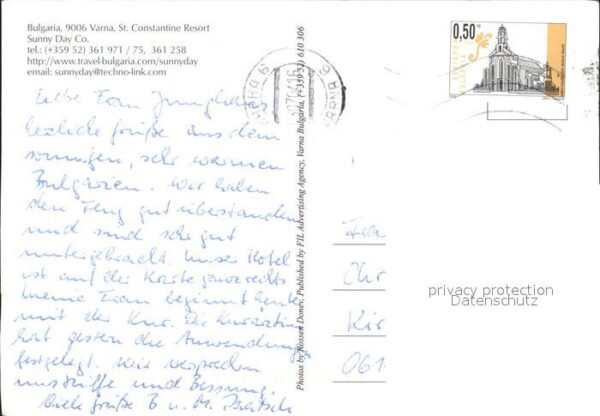 Bulgaria, 9006 Varna, St. Constantine Resort
Sunny Day Co.
tel.: (+359 52) 361 971 / 75, 361 258
http://www.travel-bulgaria.com/sunnyday
email: sunnyday@techno-link.com
Liebe Frau
herzliche Grüße aus dem
sonnigen, sehr warmen
Bulgarien. Wir haben
den Flug gut überstanden
und sind sehr gut
untergebracht. Unser Hotel
ist auf der Karte ganz rechts
Meine Frau beginnt heute
mit der Kur. Die Kurärztin
hat gestern die Anwendungen
festgelegt. Wir
und Besserung.
Viele Grüße B u. M.
Photos by Rossen Donev, Published by FIL Advertising Agency, Varna Bulgaria, (+359 52) 610 306
0,50
Frau
Chr
Kir
061
privacy protection
Datenschutz